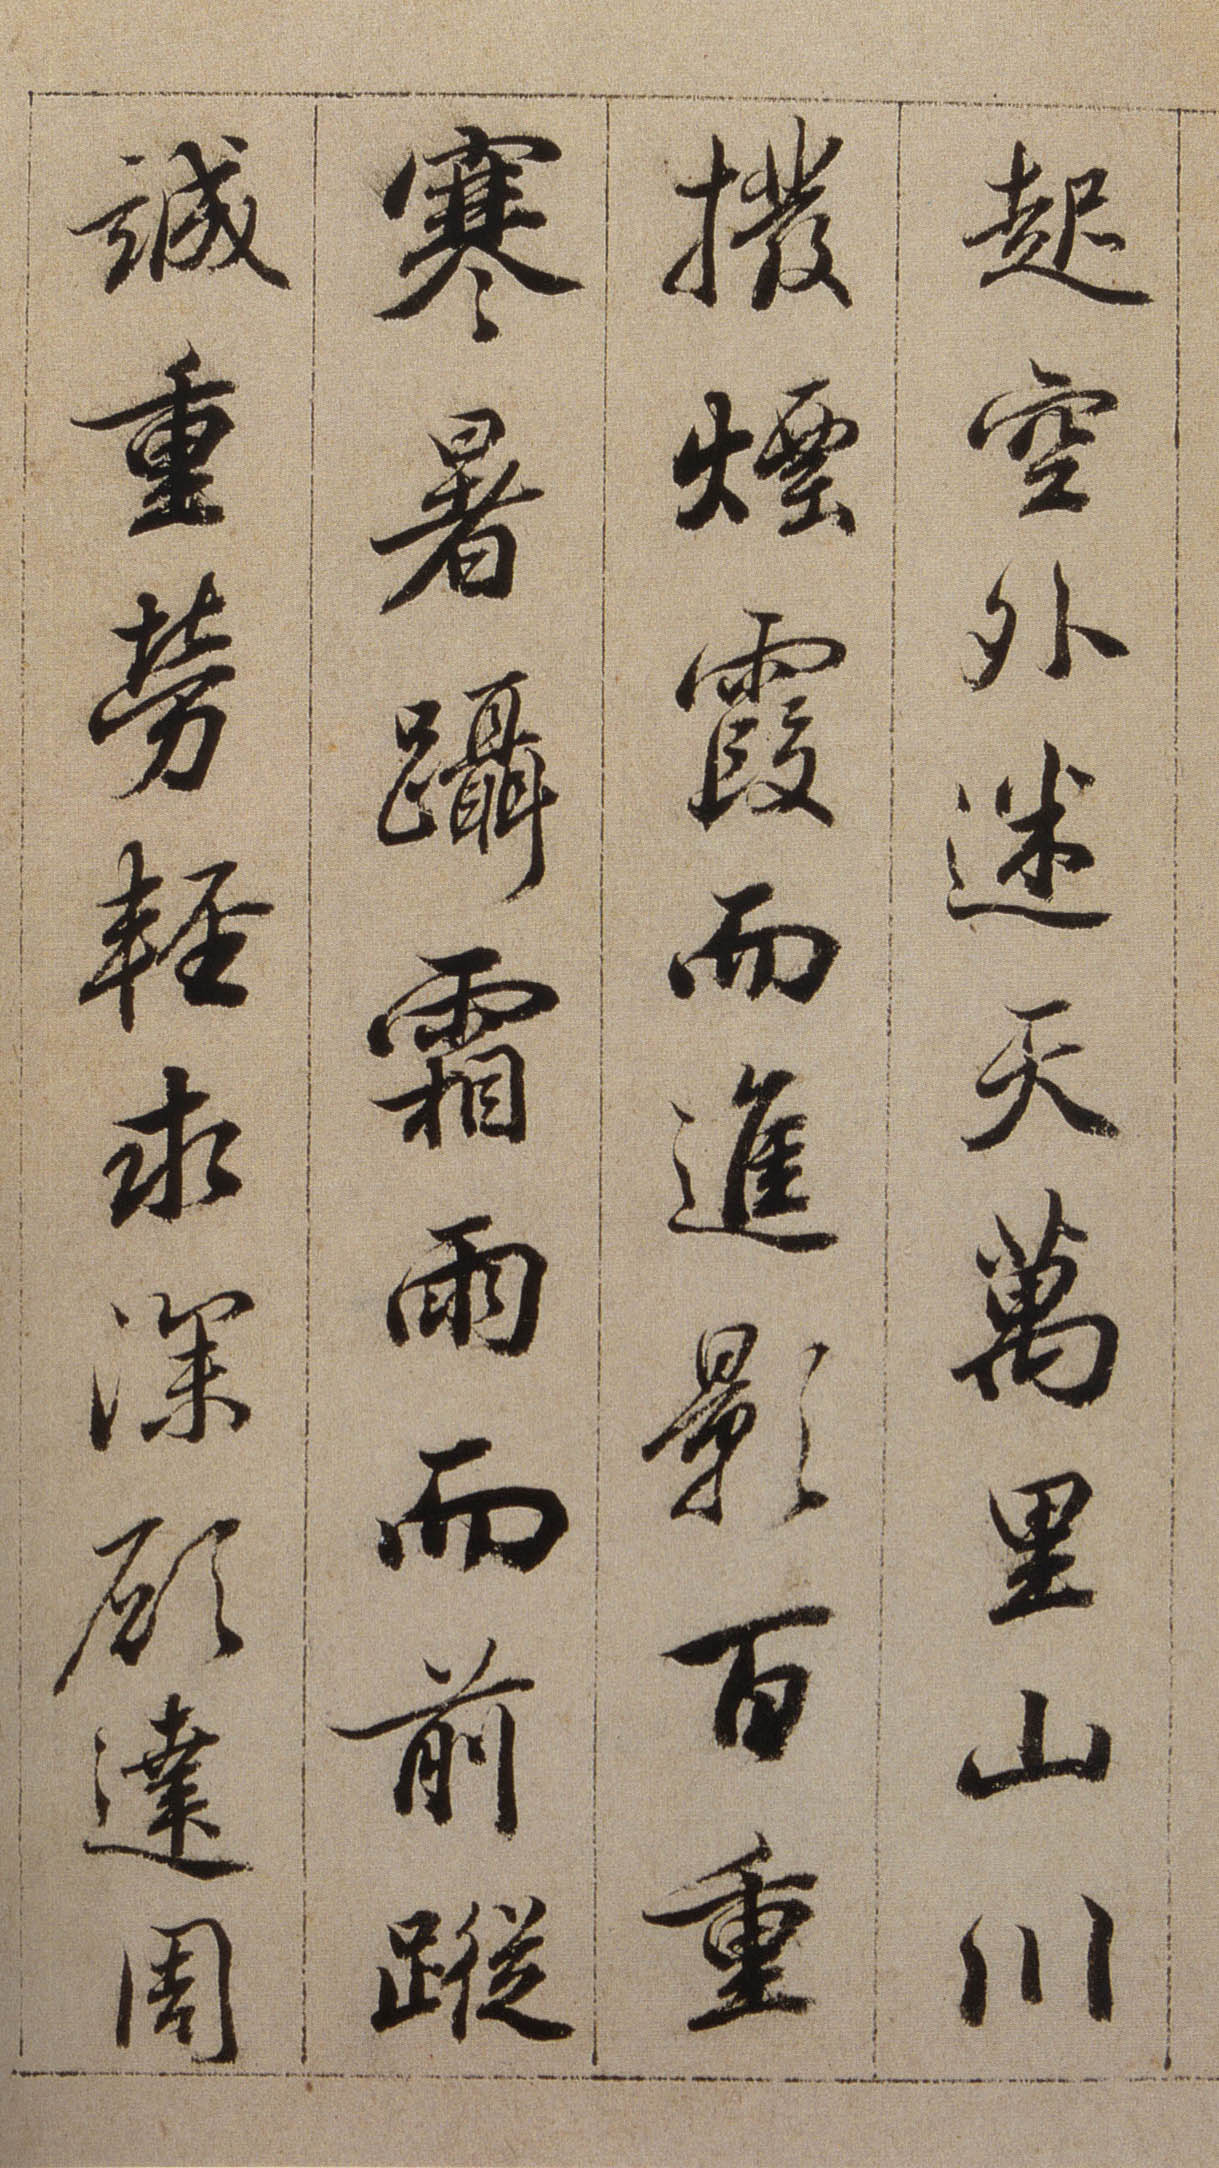 起空外迷天萬里山川
撥煙霞而進影百重
寒暑躡霜雨而前蹤
誠重勞輕求深願達周